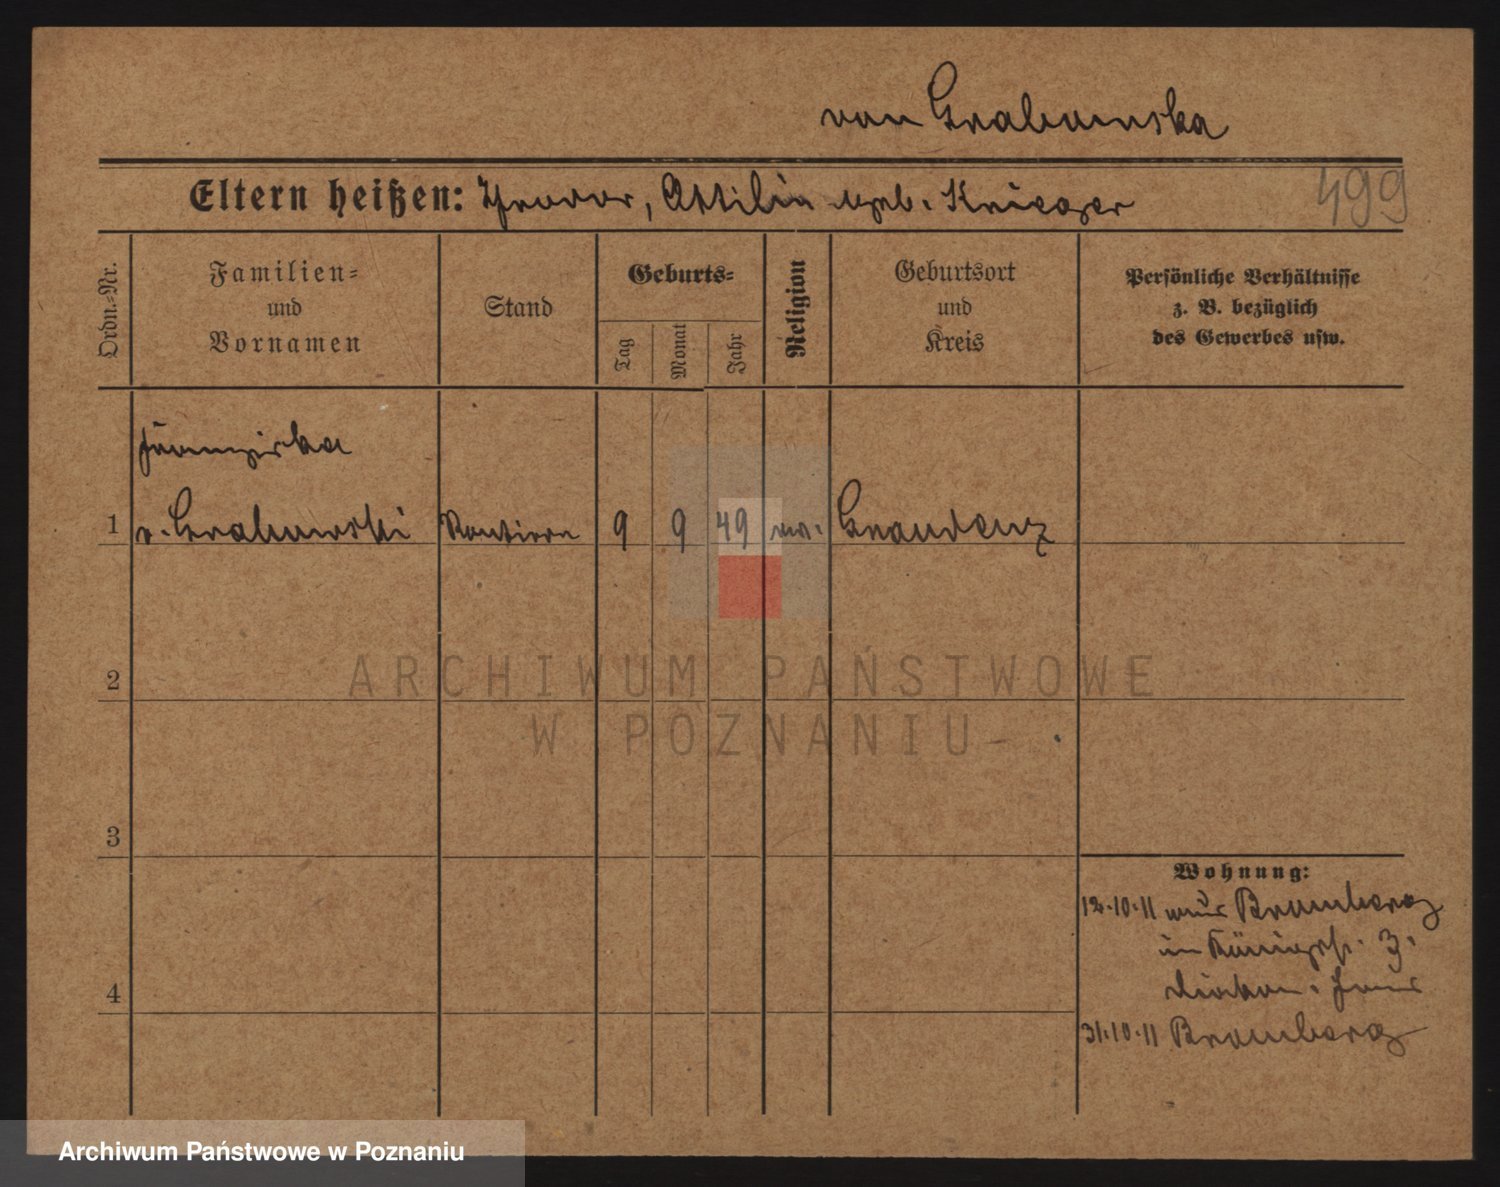 von Grabowska
Eltern heißen: Theodor, Ottilie geb. Krieger
499
Ordn.=Nr.
Familien=
und
Vornamen
Stand
Geburts=
Tag
Monat
Jahr
Religion
Geburtsort
und
Kreis
Persönliche Verhältnisse
z. B. bezüglich
des Gewerbes usw.
Franziska
1 v. Grabowski Rentiere 9 9 49 ev. Graudenz
2
3
4
Wohnung:
12.10.11 aus Bromberg
in Königspl. 3.
Diakon. Haus
31.10.11 Bromberg
ARCHIWUM PAŃSTWOWE
W POZNANIU
Archiwum Państwowe w Poznaniu